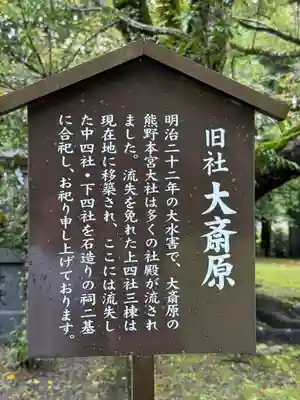 旧社 大斎原
明治二十二年の大水害で、大斎原の
熊野本宮大社は多くの社殿が流され
ました。流失を免れた上四社三棟は
現在地に移築され、ここには流失し
た中四社・下四社を石造りの祠二基
に合祀し、お祀り申し上げております。